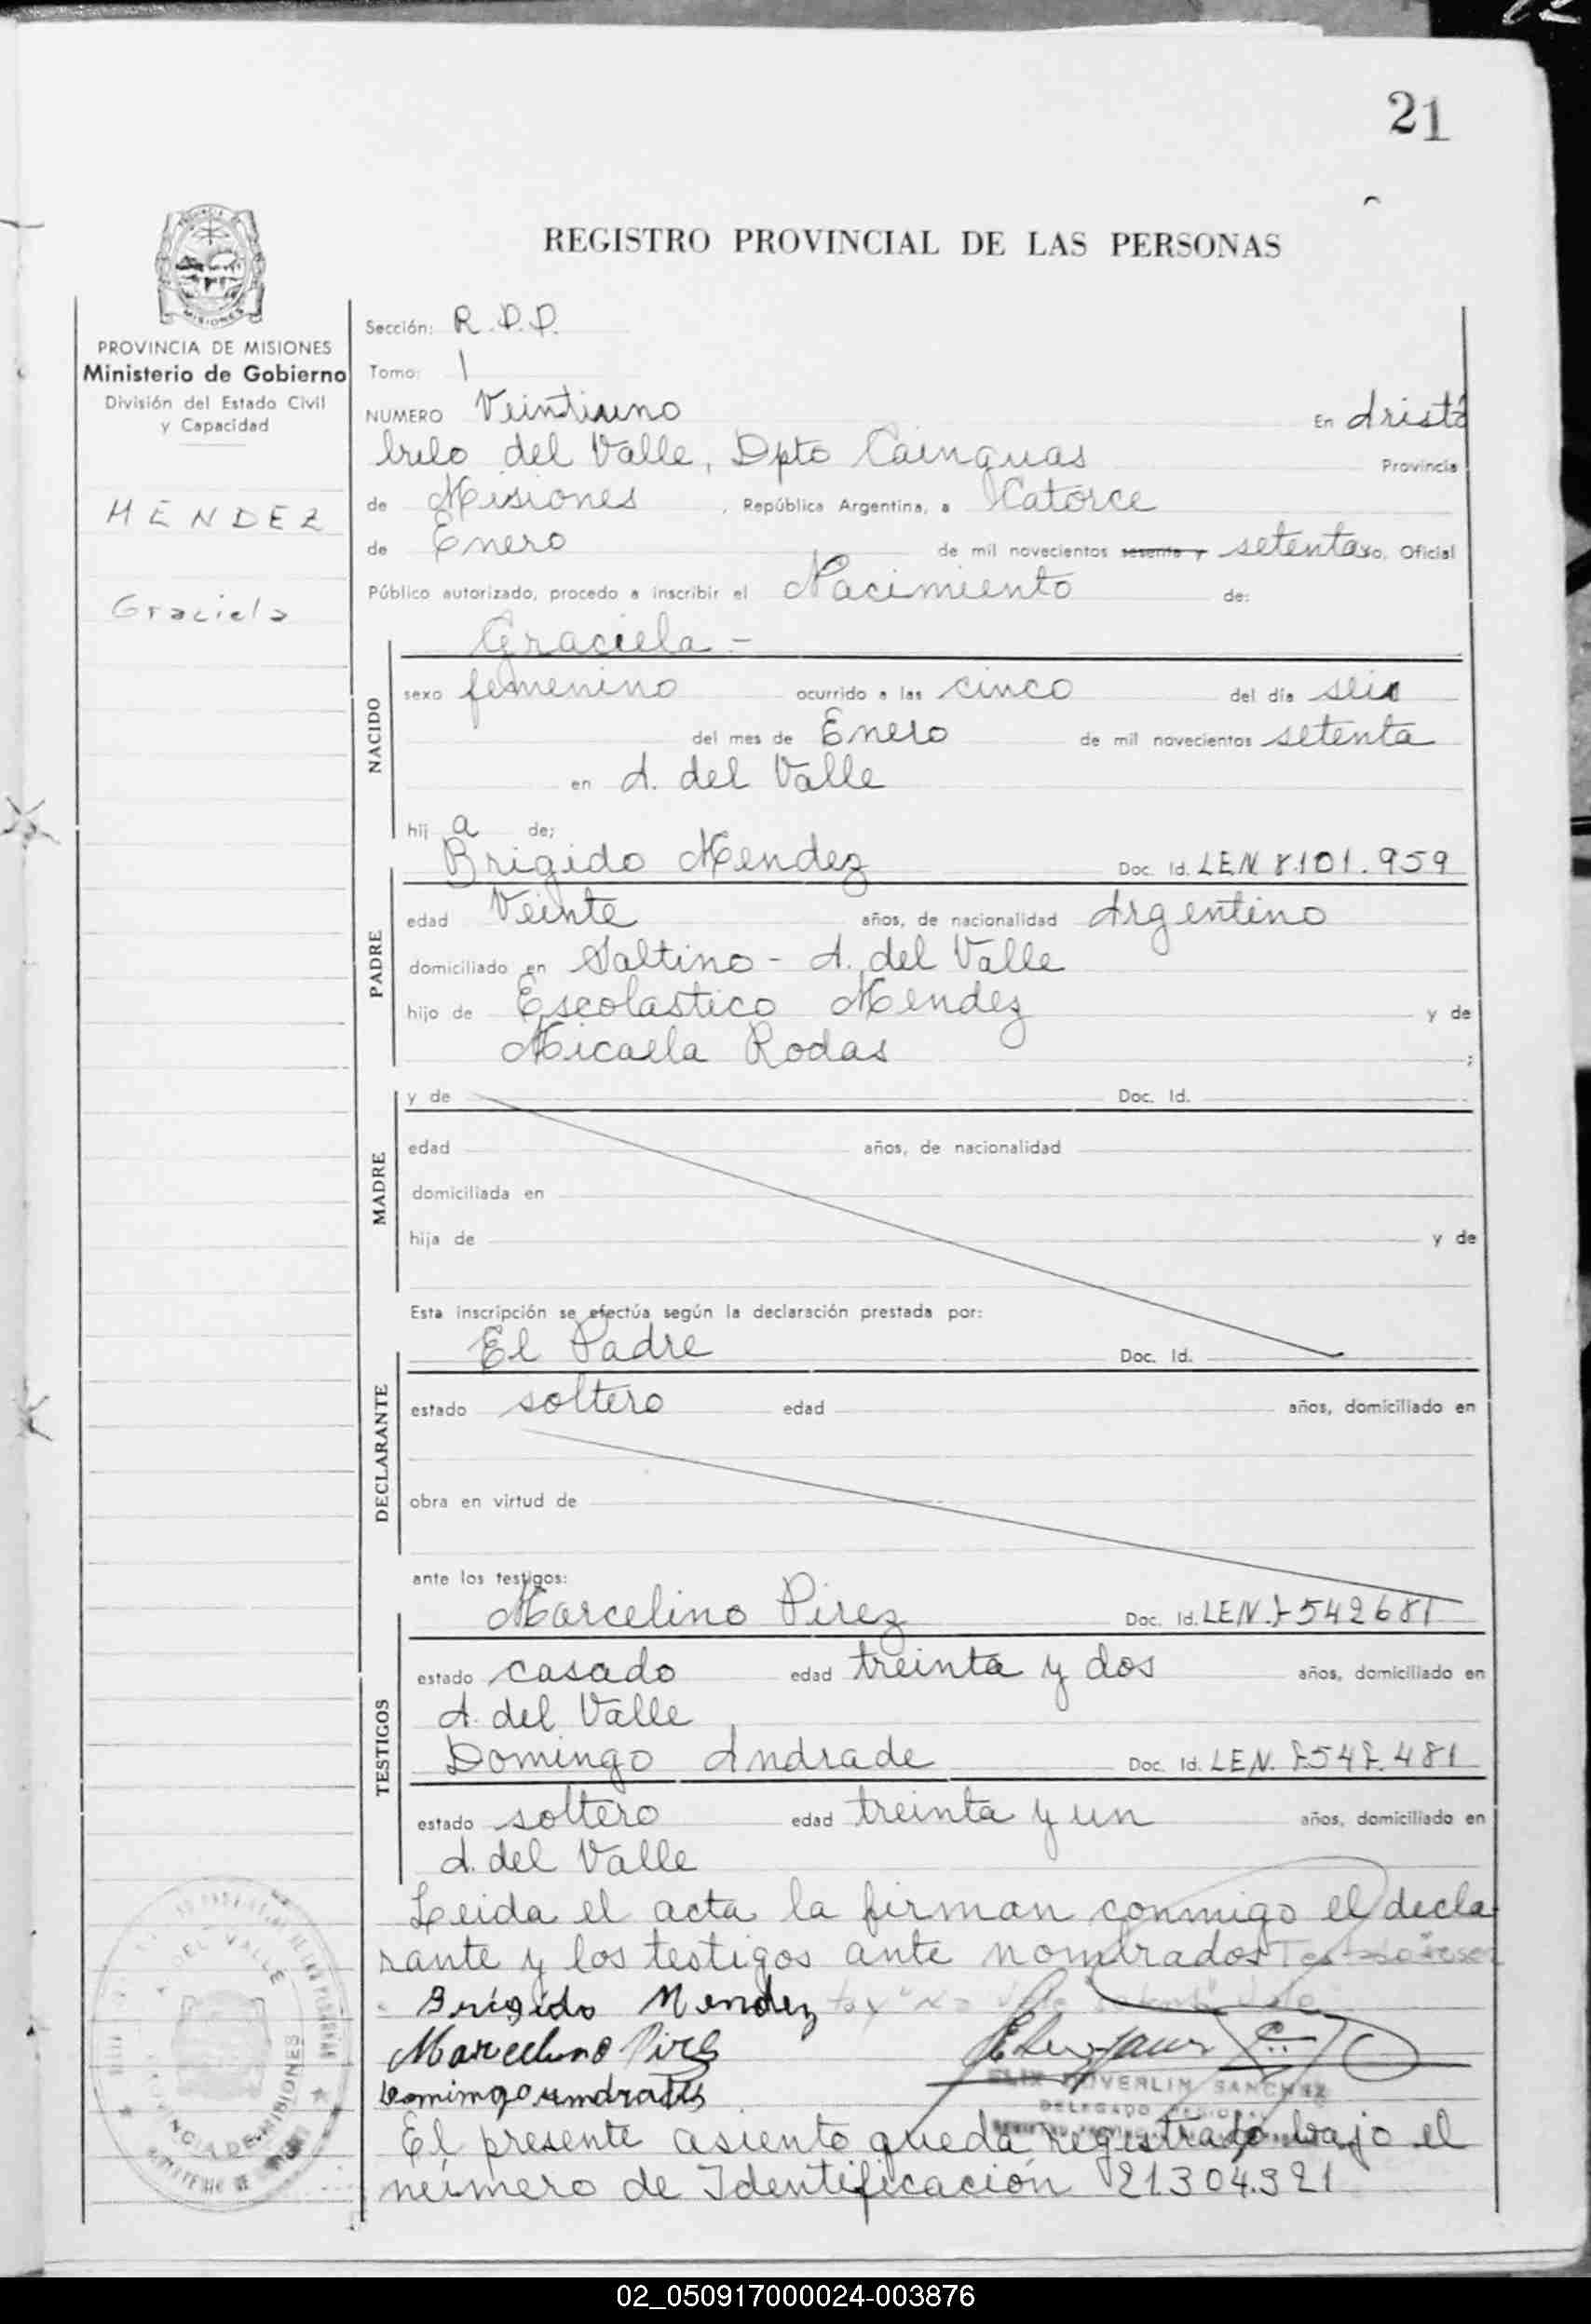 21
REGISTRO PROVINCIAL DE LAS PERSONAS
MISIONES
PROVINCIA DE MISIONES
Ministerio de Gobierno
División del Estado Civil
y Capacidad
MENDEZ
Graciela
Sección: R.P.P.
Tomo: 1
NUMERO Veintiuno En Aristó
bulo del Valle, Dpto Cainguas Provincia
de Misiones, República Argentina, a Catorce
de Enero de mil novecientos sesenta y setenta yo, Oficial
Público autorizado, procedo a inscribir el Nacimiento de:
NACIDO
Graciela -
sexo femenino ocurrido a las cinco del día seis
del mes de Enero de mil novecientos setenta
en A. del Valle
hij a de;
PADRE
Brigido Mendez Doc. Id. LEN 8.101.959
edad Veinte años, de nacionalidad Argentino
domiciliado en Saltino - A. del Valle
hijo de Escolastico Mendez y de
Micaela Rodas ;
MADRE
y de Doc. Id.
edad años, de nacionalidad
domiciliada en
hija de y de
Esta inscripción se efectúa según la declaración prestada por:
DECLARANTE
El Padre Doc. Id.
estado soltero edad años, domiciliado en
obra en virtud de
ante los testigos:
TESTIGOS
Marcelino Pirez Doc. Id. LEN. 7542681
estado casado edad treinta y dos años, domiciliado en
A. del Valle
Domingo Andrade Doc. Id. LEN. 7.547.481
estado soltero edad treinta y un años, domiciliado en
A. del Valle
Leida el acta la firman conmigo el decla
rante y los testigos ante nombrados Testado
Brigido Mendez
Marcelino Pires
Domingo andrade
SANCHEZ
DELEGADO
El presente asiento queda registrado bajo el
número de Identificación 21.304.321
A. DEL VALLE
PROVINCIA DE MISIONES
02_050917000024-003876